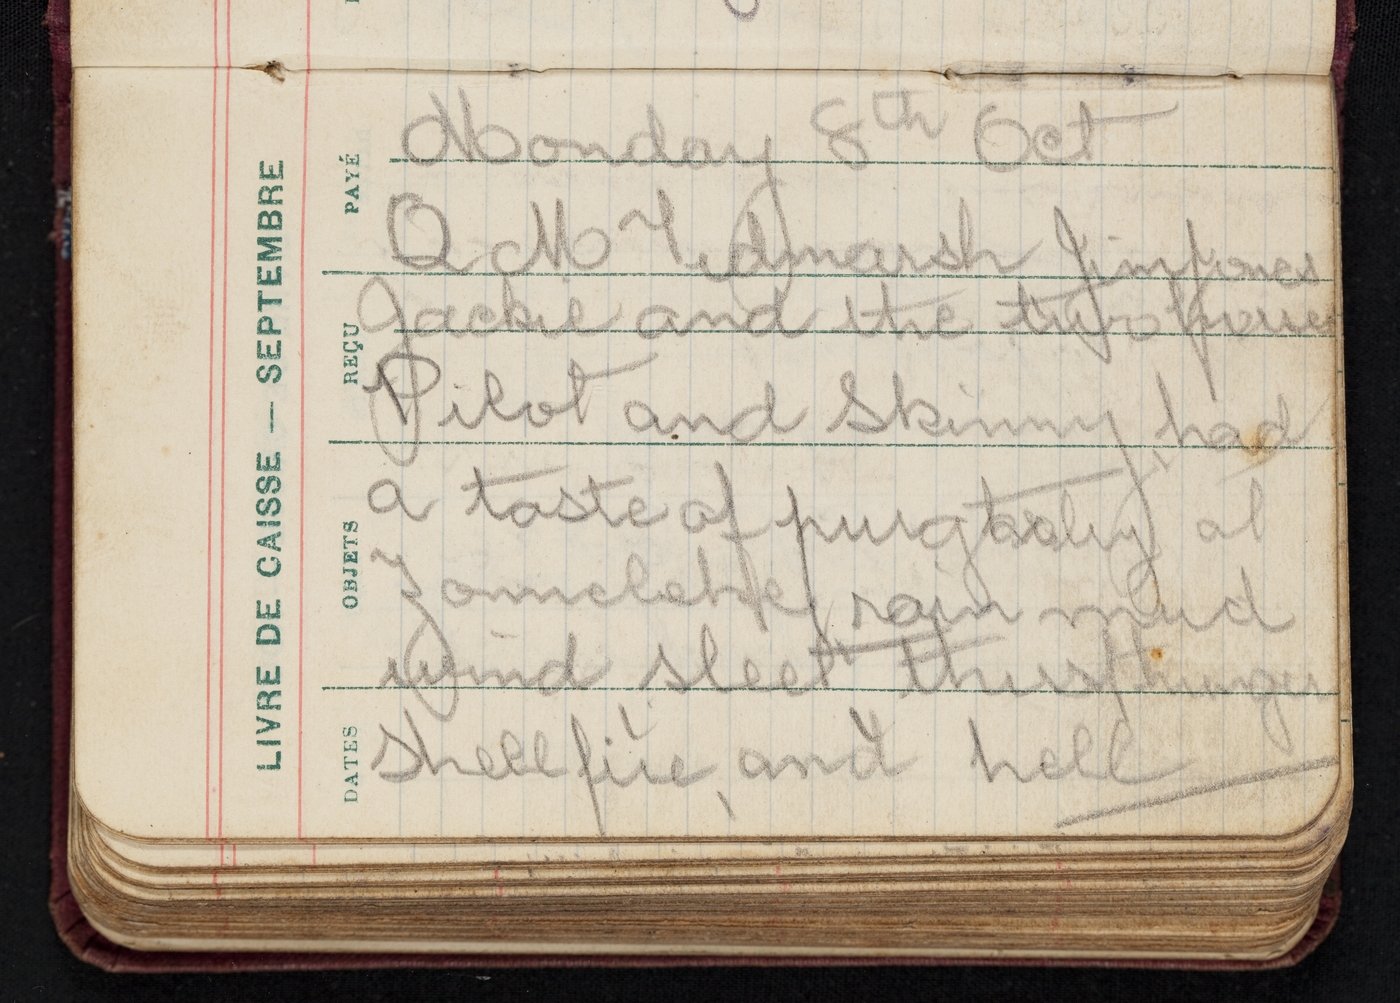 Monday 8th Oct
Q M Tidmarsh Jim Jones
Jackie and the two
Pilot and Skinny had
a taste of purgtaory at
Zonnebeke, rain mud
wind sleet thirst hunger
Shellfire, and hell
LIVRE DE CAISSE — SEPTEMBRE
PAYÉ
REÇU
OBJETS
DATES